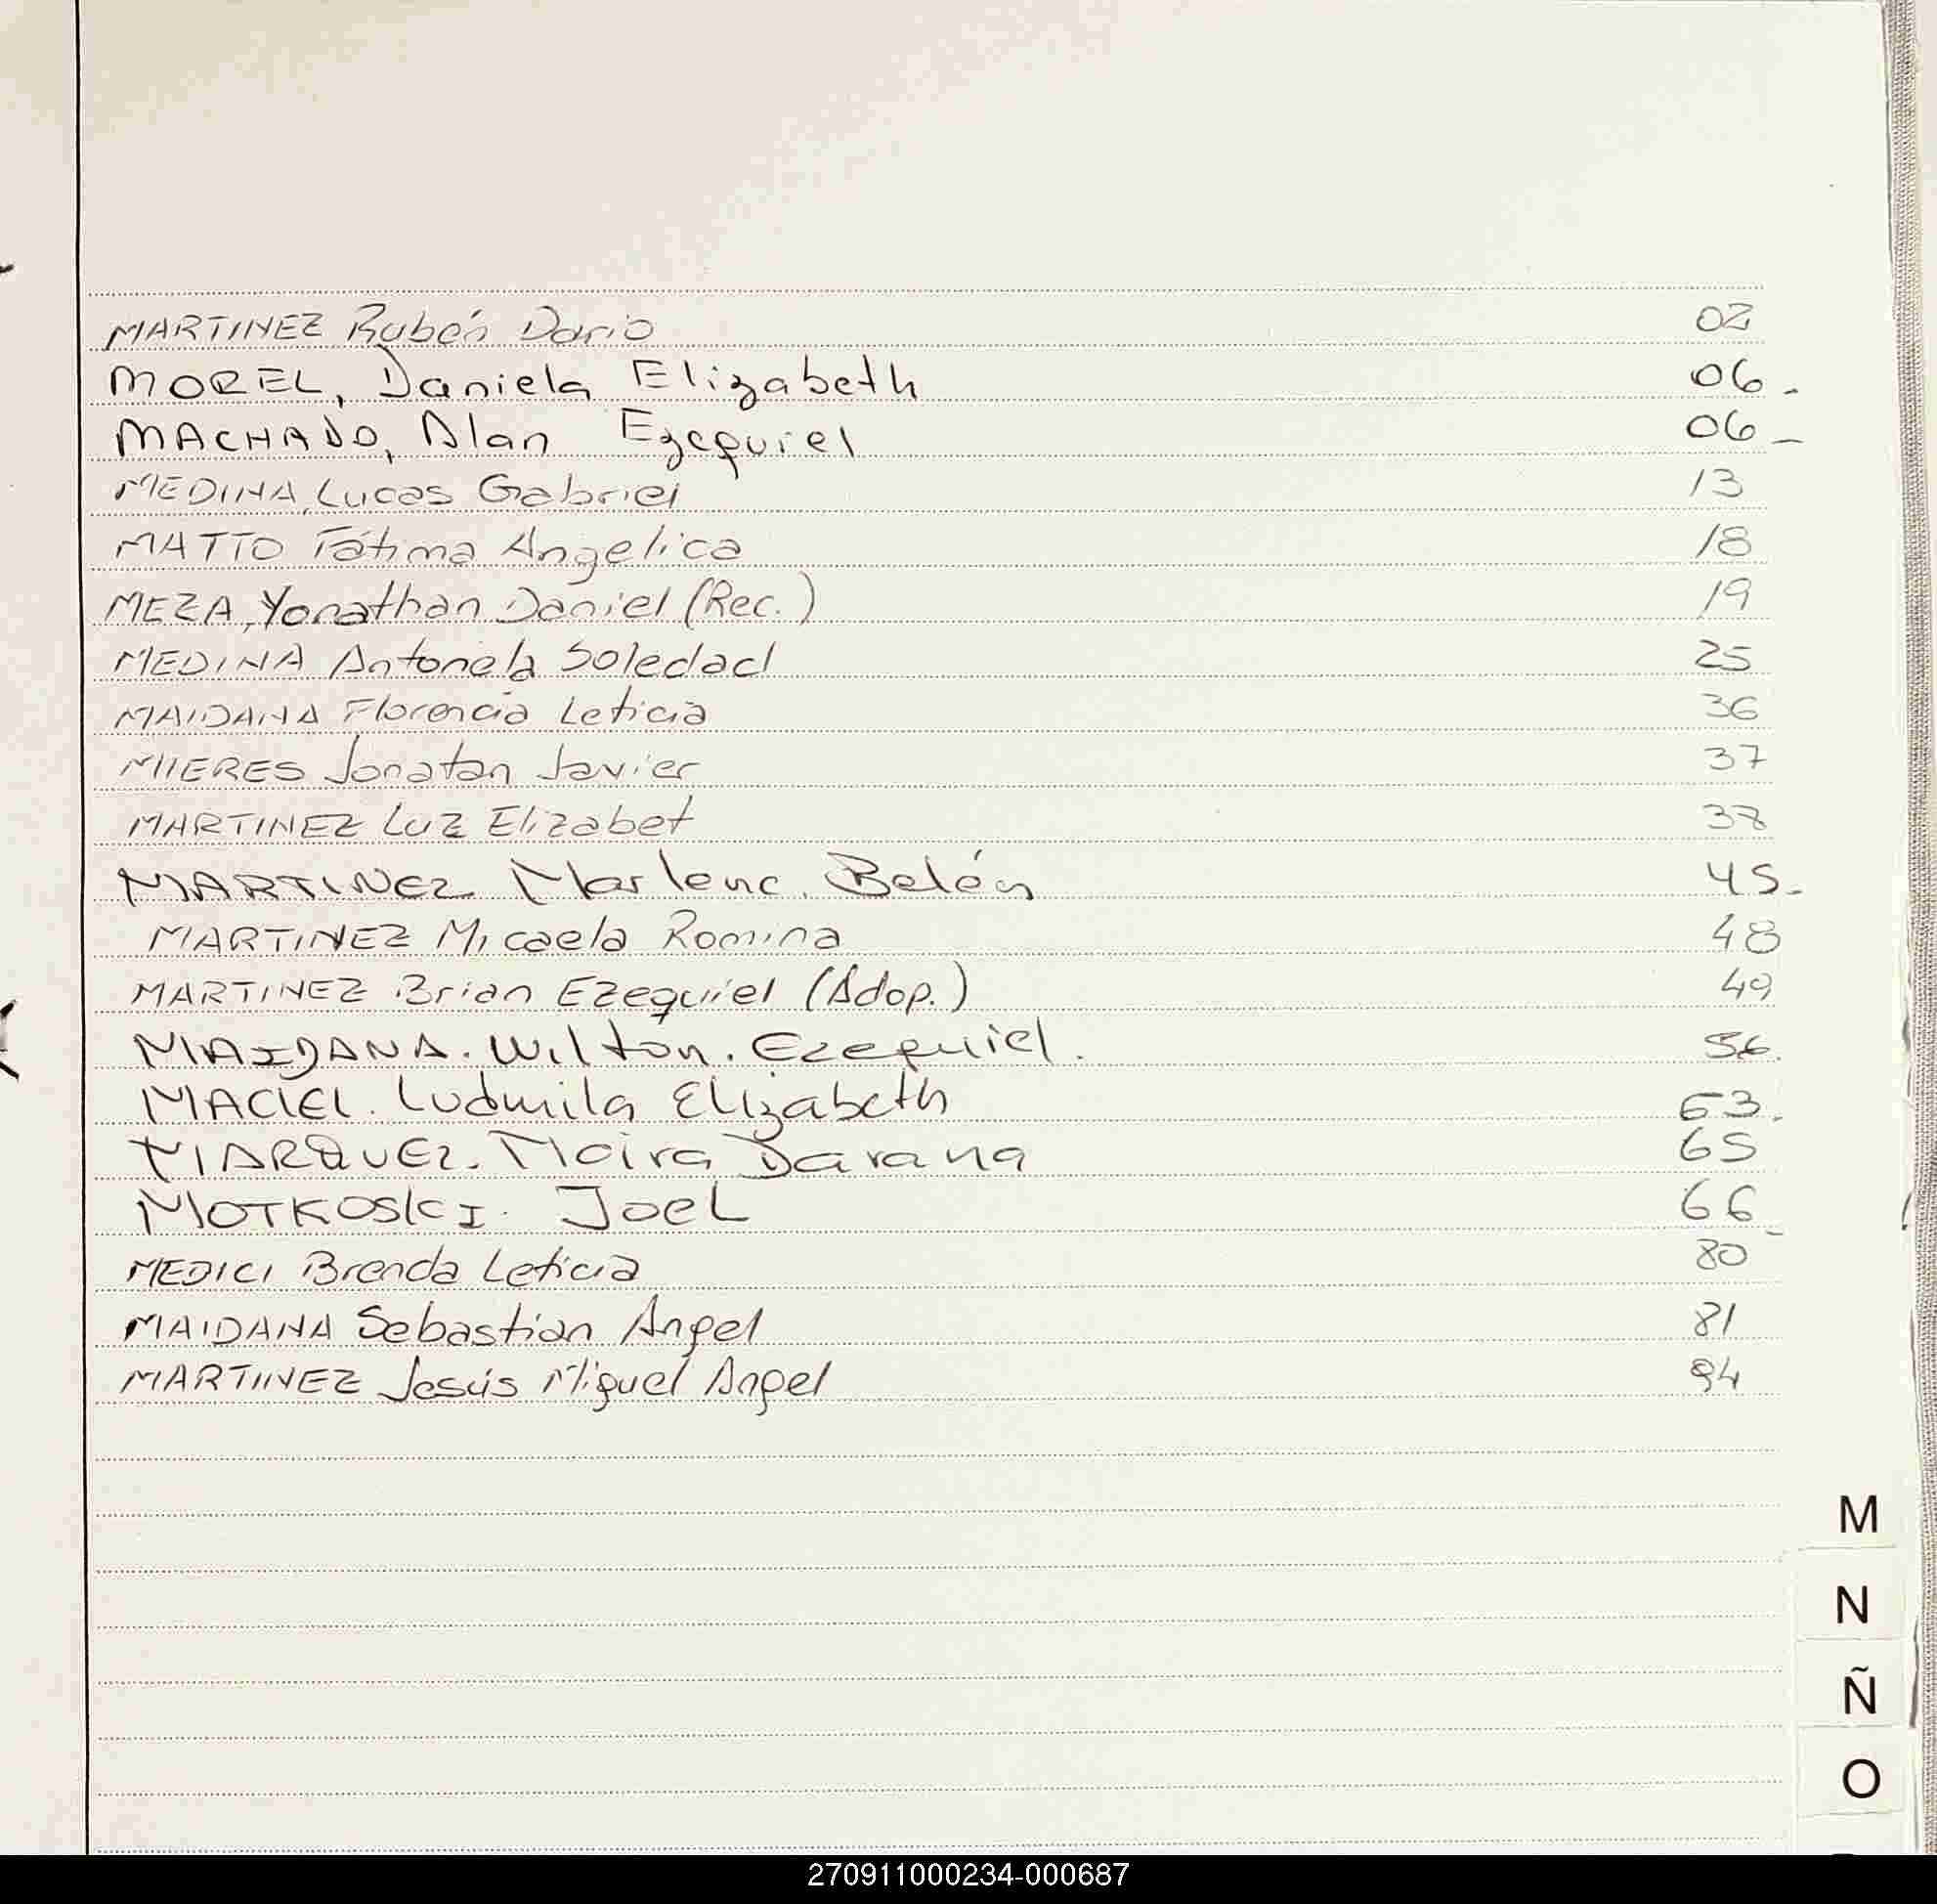 MARTINEZ Rubén Dario 02
MOREL, Daniela Elizabeth 06-
MACHADO, Alan Ezequiel 06-
MEDINA, Lucas Gabriel 13
MATTO Fátima Angelica 18
MEZA, Yonathan Daniel (Rec.) 19
MEDINA Antonela Soledad 25
MAIDANA Florencia Leticia 36
MIERES Jonatan Javier 37
MARTINEZ Luz Elizabet 38
MARTINEZ Marlene. Belén 45-
MARTINEZ Micaela Romina 48
MARTINEZ Brian Ezequiel (Adop.) 49
MAIDANA. Wilton. Ezequiel. 56.
MACIEL. Ludmila Elizabeth 63.
MARQUEZ. Moira Darana 65
MOTKOSKI. Joel 66-
MEDICI Brenda Leticia 80
MAIDANA Sebastian Angel 81
MARTINEZ Jesús Miguel Angel 94
M
N
Ñ
O
270911000234-000687